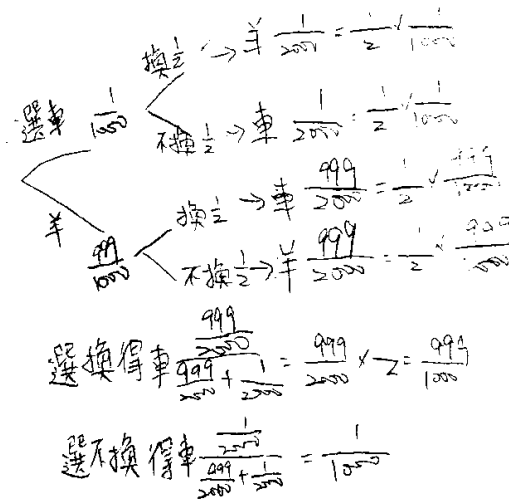 換 1/2 → 羊 1/2000 = 1/2 × 1/1000
選車 1/1000
不換 1/2 → 車 1/2000 = 1/2 × 1/1000
換 1/2 → 車 999/2000 = 1/2 × 999/1000
羊 999/1000
不換 1/2 → 羊 999/2000 = 1/2 × 999/1000
選換得車 (999/2000)/(999/2000 + 1/2000) = 999/2000 × 2 = 999/1000
選不換得車 (1/2000)/(999/2000 + 1/2000) = 1/1000